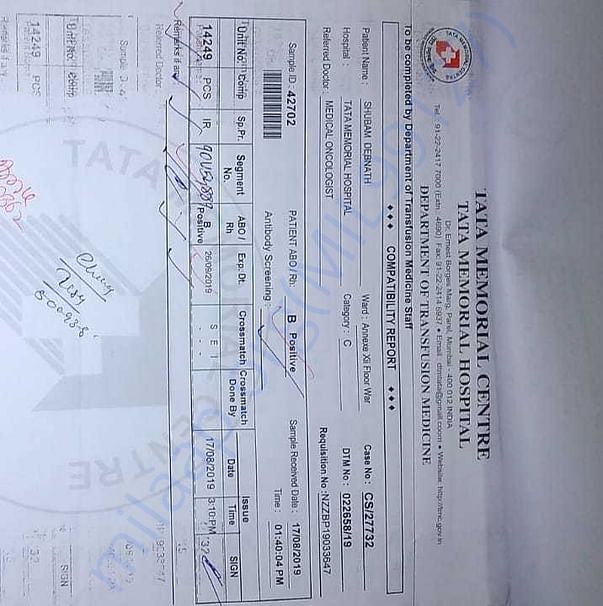 TATA MEMORIAL CENTRE
TATA MEMORIAL HOSPITAL
Dr. Ernest Borges Marg, Parel, Mumbai - 400 012 INDIA
Tel: 91-22-2417 7000 (Extn. 4690) Fax: 91-22-2414 6937 • Email: dtmtata@gmail.coom • Website: http://tmc.gov.in
DEPARTMENT OF TRANSFUSION MEDICINE
To be completed by Department of Transfusion Medicine Staff
♦♦♦ COMPATIBILITY REPORT ♦♦♦
Patient Name : SHUBAM DEBNATH Ward : Annexe Xii Floor War Case No : CS/27732
Hospital : TATA MEMORIAL HOSPITAL Category : C DTM No : 022658/19
Referred Doctor : MEDICAL ONCOLOGIST Requisition No :NZZBP19033647
Sample ID : 42702 PATIENT ABO / Rh: B Positive Sample Received Date : 17/08/2019
Antibody Screening : Time : 01:40:04 PM
Unit No. Comp Sp.Pr. Segment No. ABO / Rh Exp. Dt. Crossmatch Crossmatch Done By Issue Date Time SIGN
S E I
14249 PCS IR B Positive 26/09/2019 - - - 17/08/2019 3:10:PM
Remarks if any
Referred Doctor
Unit No. Comp
SIGN
14249 PCS
Remarks if any
TATA
CENTRE
milaap